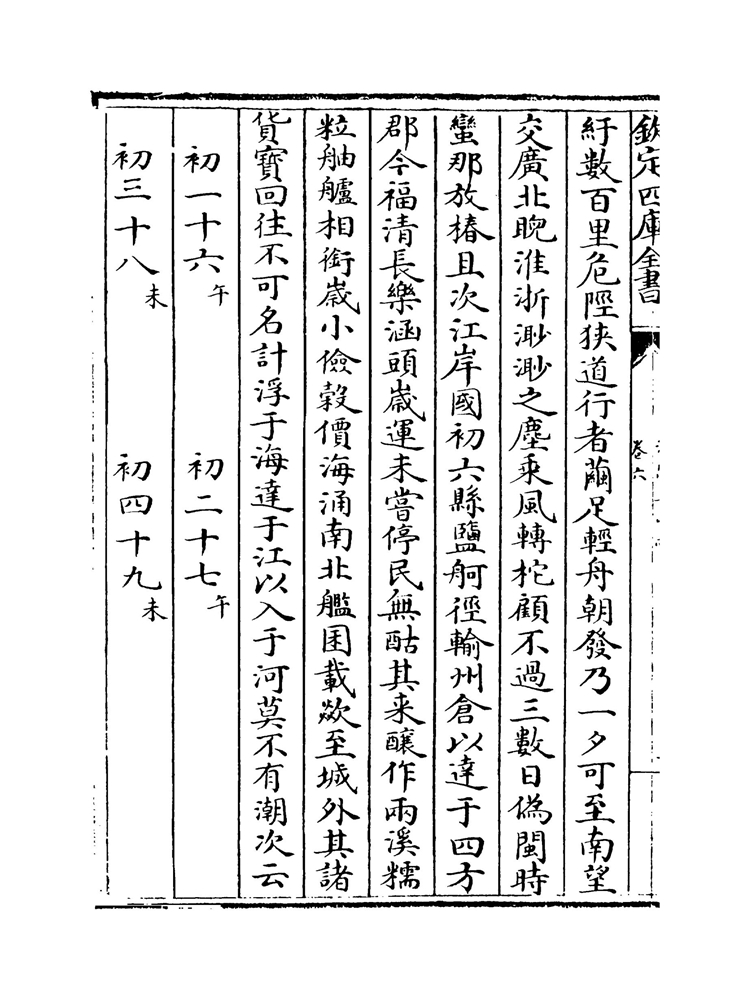 欽定四庫全書
卷六
紆數百里危陘狹道行者繭足輕舟朝發乃一夕可至南望
交廣北睨淮浙渺渺之塵乘風轉柁顧不過三數日偽閩時
蠻那放椿且次江岸國初六縣鹽舸徑輸州倉以達于四方
郡今福清長樂涵頭嵗運未嘗停民無酤其来釀作兩溪糯
粒舳艫相銜嵗小儉榖價海涌南北艦囷載歘至城外其諸
貨寳回往不可名計浮于海達于江以入于河莫不有潮次云
初一十六午 初二十七午
初三十八未 初四十九未